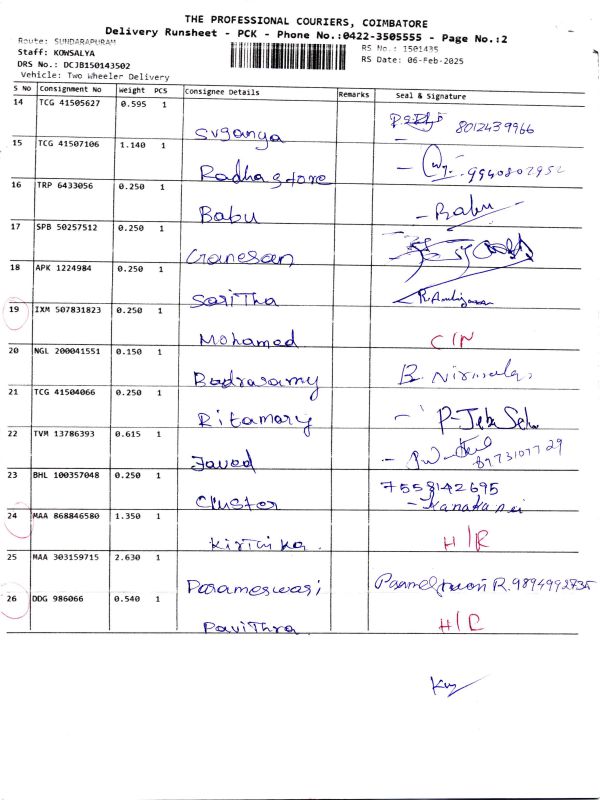 THE PROFESSIONAL COURIERS, COIMBATORE
Delivery Runsheet - PCK - Phone No.:0422-3505555 - Page No.:2
Route: SUNDARAPURAM
Staff: KOWSALYA
RS No.: 1501435
DRS No.: DCJB150143502
RS Date: 06-Feb-2025
Vehicle: Two Wheeler Delivery
S No Consignment No Weight PCS Consignee Details Remarks Seal & Signature
14 TCG 41505627 0.595 1
Suganya 8012439966
15 TCG 41507106 1.140 1
Radha store 9940802952
16 TRP 6433056 0.250 1
Babu - Babu
17 SPB 50257512 0.250 1
Ganesan
18 APK 1224984 0.250 1
SariTha
19 IXM 507831823 0.250 1
Mohamed C/N
20 NGL 200041551 0.150 1
Badrasamy B. Nirmala
21 TCG 41504066 0.250 1
Ritamary
22 TVM 13786393 0.615 1
Javed 8973107729
23 BHL 100357048 0.250 1
Cluster 7558142695
- Kanakamei
24 MAA 868846580 1.350 1
Kirthika. H/R
25 MAA 303159715 2.630 1
Parameswari R. 9894992735
26 DDG 986066 0.540 1
PaviThra H/R